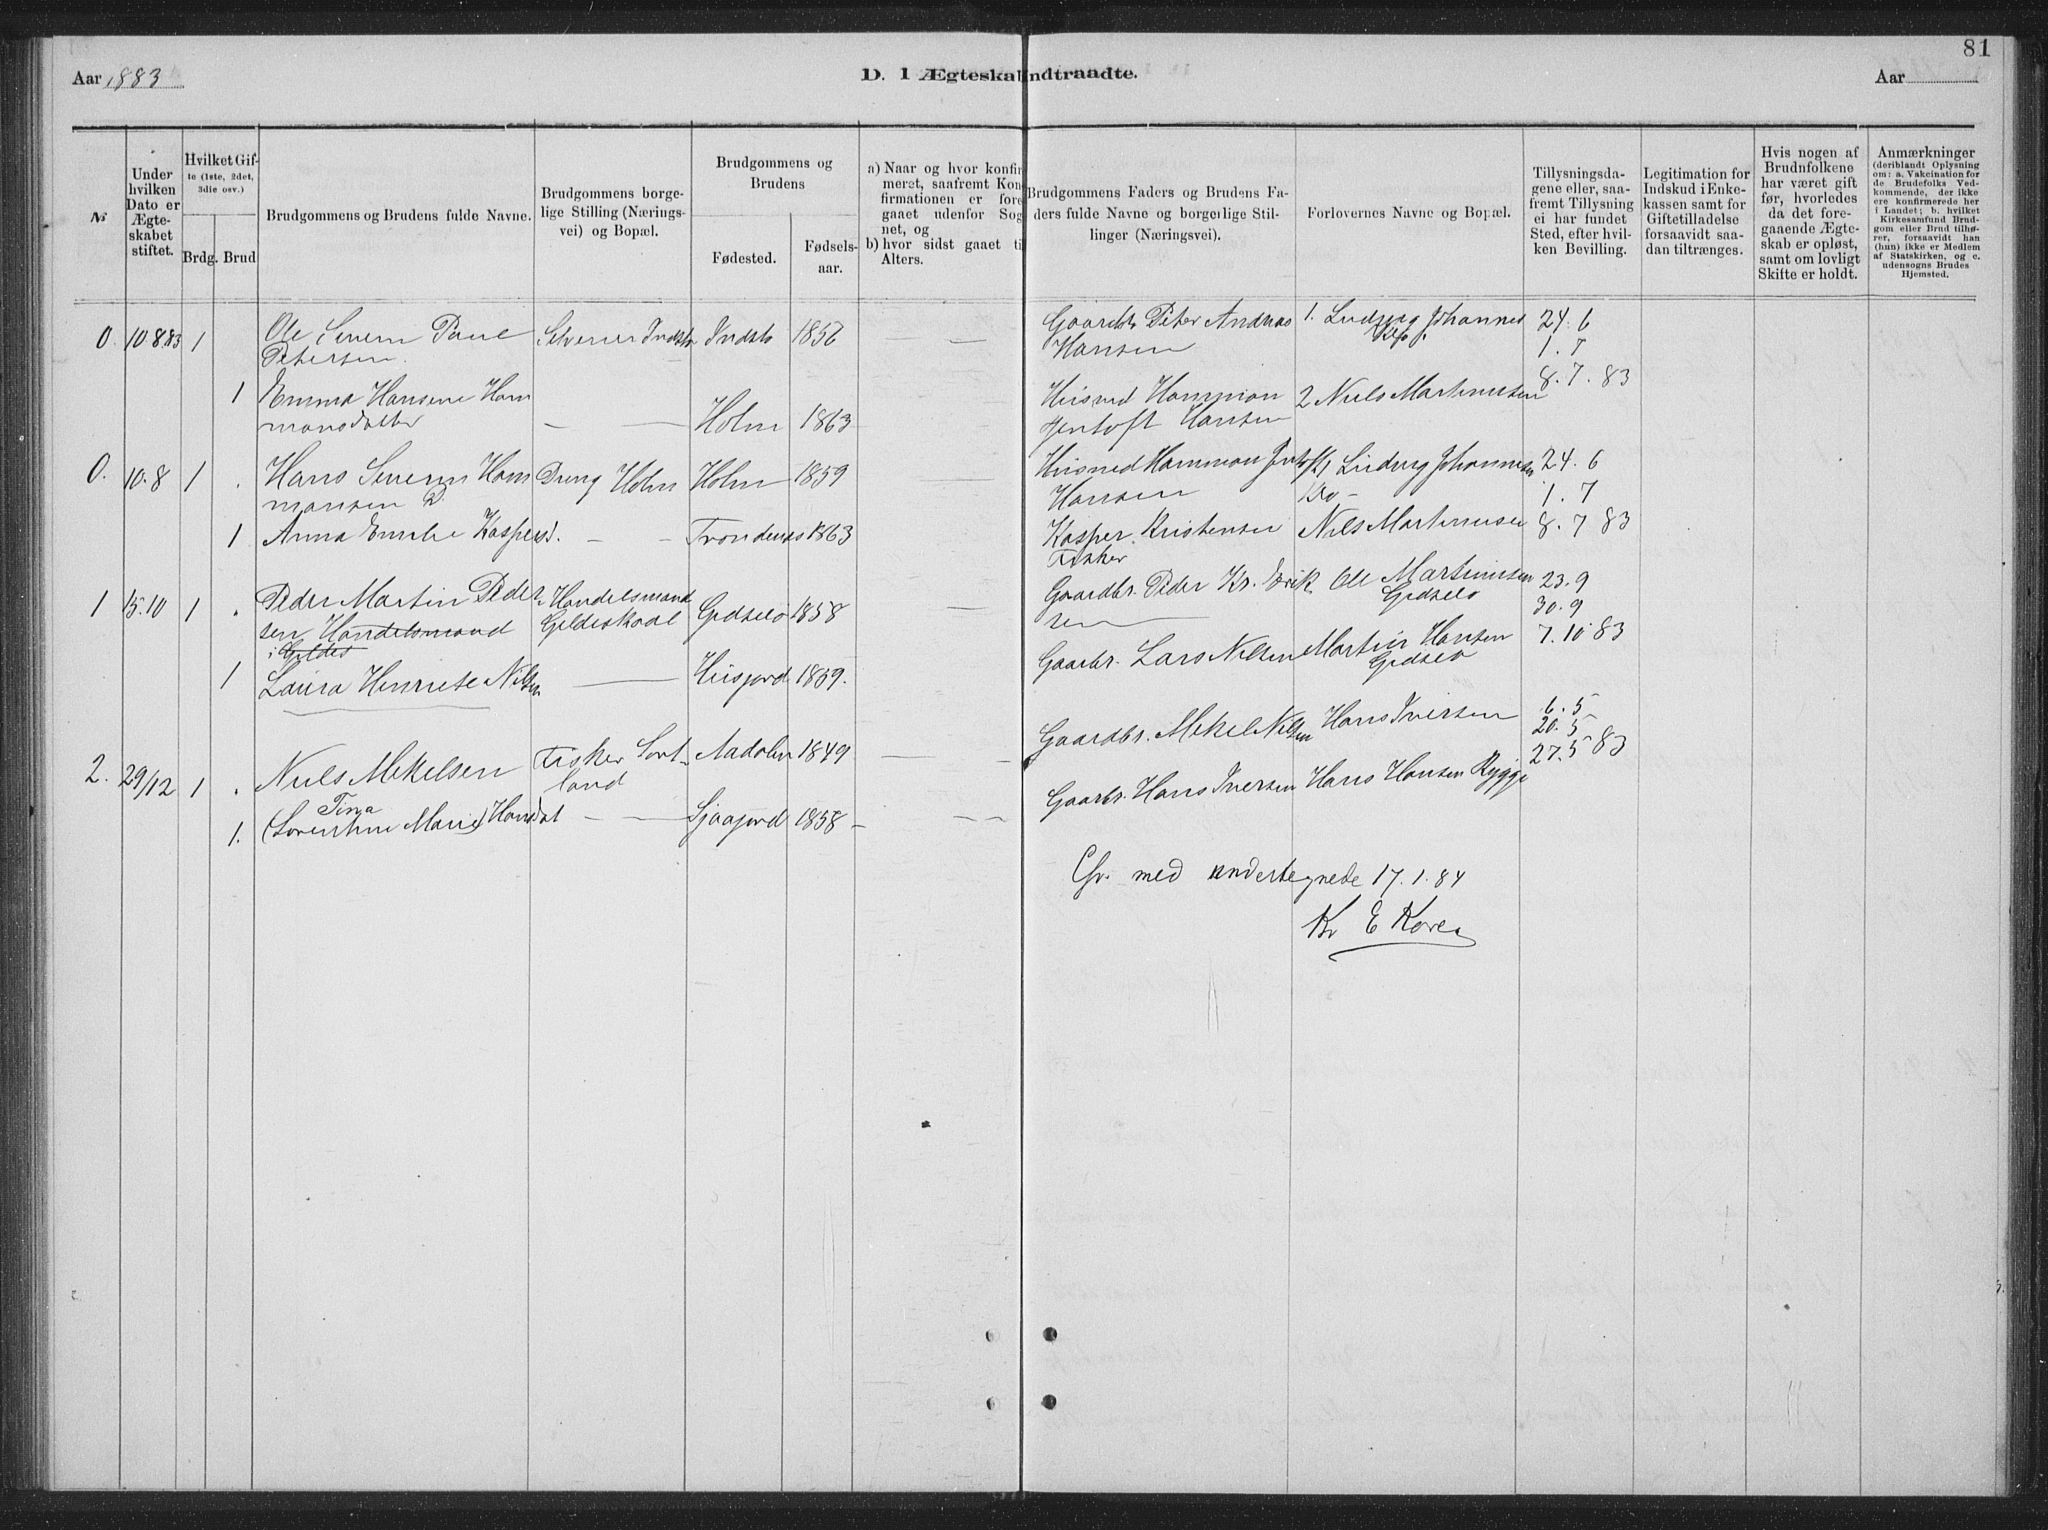 81
Aar 1883
D. 1 Ægteskab indtraadte.
Aar
No
Under hvilken Dato er Ægteskabet stiftet.
Hvilket Gifte (1ste, 2det, 3die osv.)
Brdg. Brud
Brudgommens og Brudens fulde Navne.
Brudgommens borgelige Stilling (Næringsvei) og Bopæl.
Brudgommens og Brudens
Fødested.
Fødselsaar.
a) Naar og hvor konfirmeret, saafremt Konfirmationen er foregaaet udenfor Sognet, og
b) hvor sidst gaaet til Alters.
Brudgommens Faders og Brudens Faders fulde Navne og borgerlige Stillinger (Næringsvei).
Forlovernes Navne og Bopæl.
Tillysningsdagene eller, saafremt Tillysning ei har fundet Sted, efter hvilken Bevilling.
Legitimation for Indskud i Enkekassen samt for Giftetilladelse forsaavidt saadan tiltrænges.
Hvis nogen af Brudnfolkene har været gift før, hvorledes da det foregaaende Ægteskab er opløst, samt om lovligt Skifte er holdt.
Anmærkninger (deriblandt Oplysning om: a. Vakcination for de Brudefolks Vedkommende, der ikke ere konfirmerede her i Landet; b. hvilket Kirkesamfund Brudgom eller Brud tilhører, forsaavidt han (hun) ikke er Medlem af Statskirken, og c. udensogns Brudes Hjemsted.
0. 10.8.83 1 Ole Severin Paul Selveier Indsto Indsto 1856 Gaardbr Peter Andreas 1. Ludvig Johannes 24.6
Petersen. Hansen 1.7
1 Emma Hansine Ham Husmd Hammon 2 Niels Martinussen 8.7.83
monsdatter Holm 1863 Jentoft Hansen
0. 10.8 1 Hans Severin Ham Dreng Holm Holm 1859 Husmd Hammon Jentoft 1 Ludvig Johannessen 24.6
monsen Hansen 1.7
1 Anna Emilie Kaspersd. Trondenæs 1863 Kasper Kristensen Nils Martinusen 8.7.83
Fisker
1 15.10 1 Peder Martin Peder Handelsmand Gidselø 1858 Gaardbr. Peder Kr. Erik Ole Martinusen 23.9
sen Handelsmand Gildeskaal sen Gidselø 30.9
i Gildes
1 Laura Henriete Nilsen Husjord 1859. Gaarbr. Lars Nilsen Martin Hansen 7.10 83
Gidselø
2. 29/12 1 Niels Mekelsen Fisker Sort Aadalen 1849 Gaardbr. Mekel Nilsen Hans Iversen 6.5
land 20.5
Tina
1. (Lorentine Marie) Hansdat Sjaafjord 1858 Gaarbr. Hans Iversen Hans Hansen Rygge 27.5 83
Cfr. med undertegnede 17.1.84
Kr E Koren